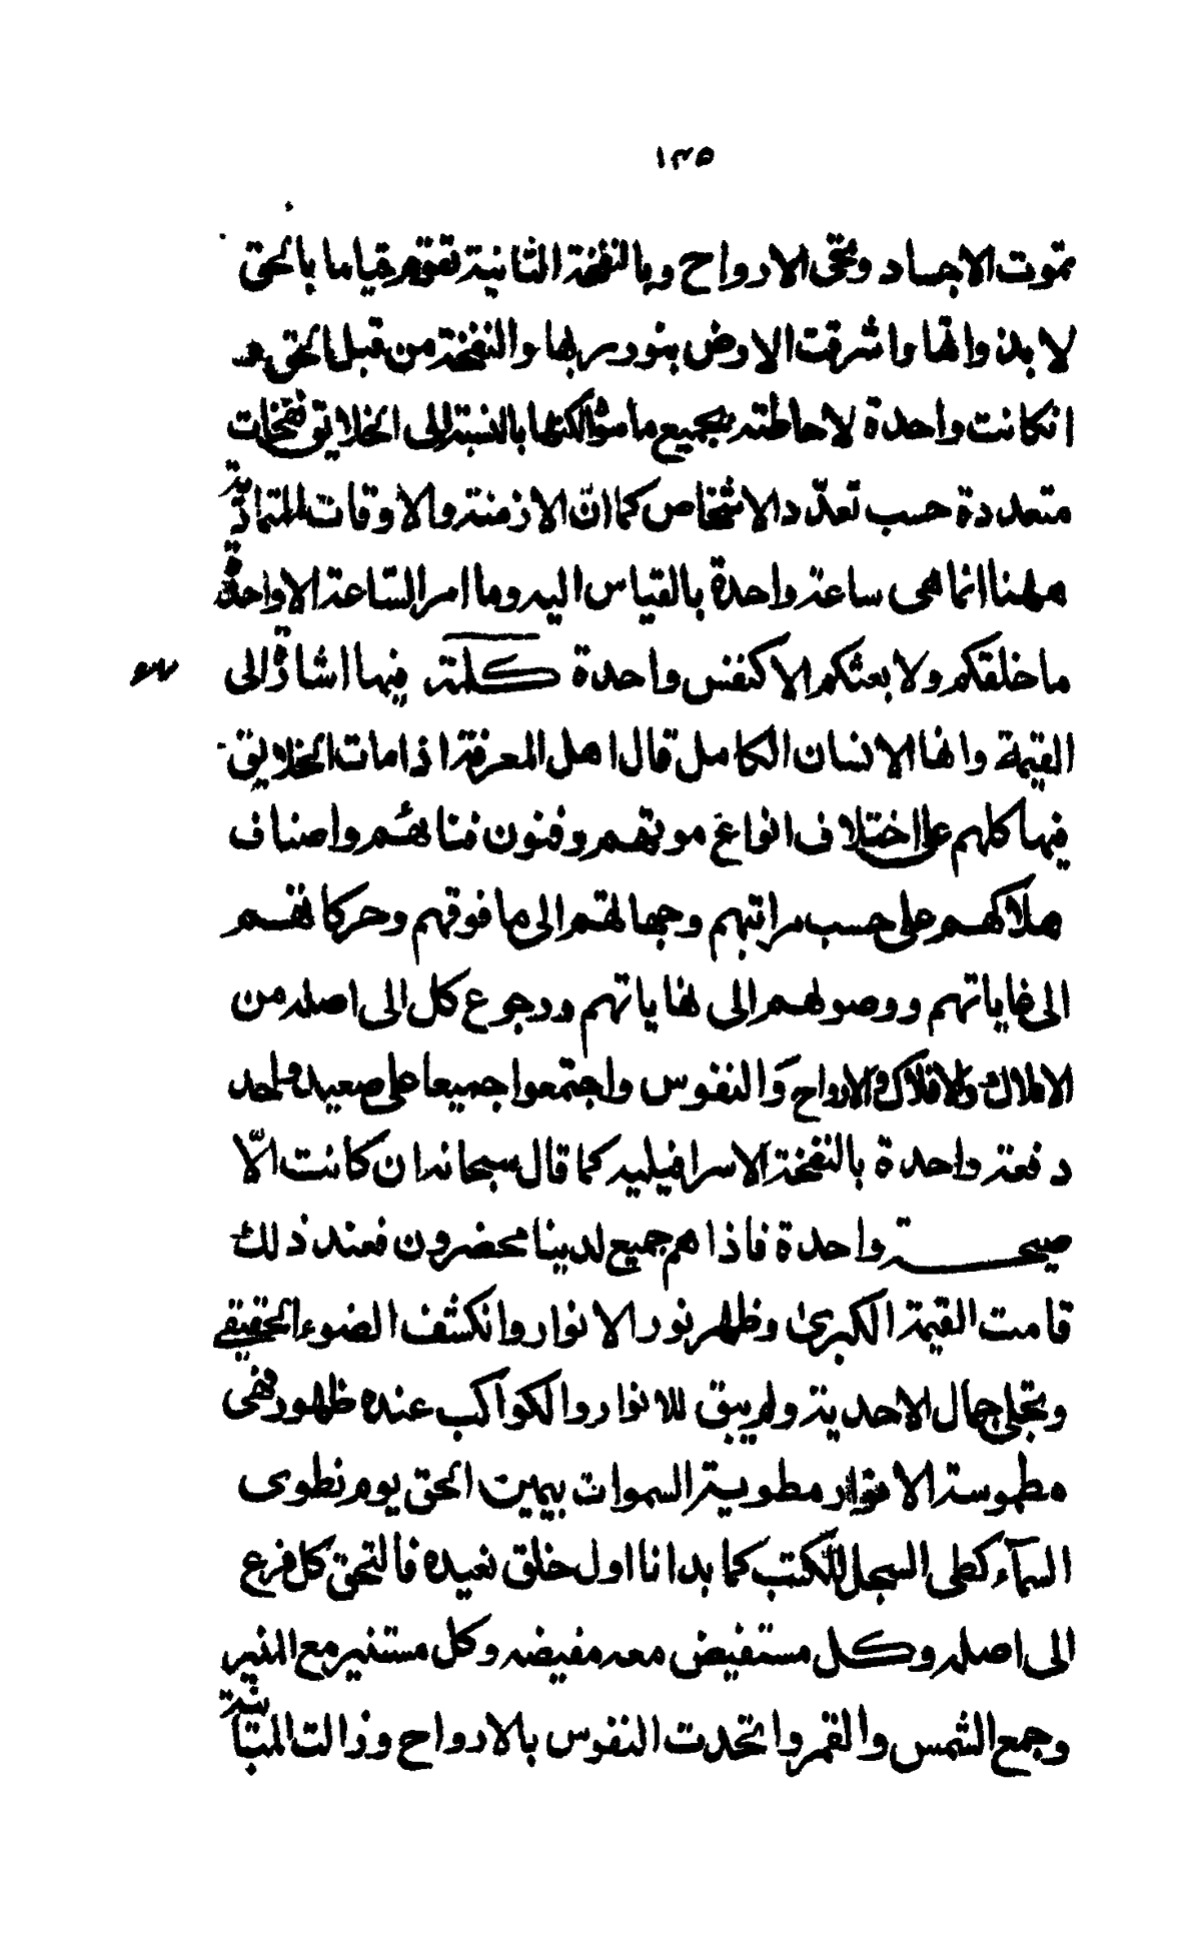 ١٣٥
تموت الاجساد وتحيى الارواح وبالنفخة الثانية تقوم قياما بالحق
لا بذواتها واشرقت الارض بنور ربها والنفخة من قبل الحق هـ
انكانت واحدة لاحاطته بجميع ما سواه لكنها بالنسبة الى الخلايق نفخات
متعددة حسب تعدّد الاشخاص كما انّ الازمنة والاوقات المتمادّية
ههنا انما هى ساعة واحدة بالقياس اليه وما امر السّاعة الا واحدة
ما خلقكم ولا بعثكم الا كنفس واحدة كلمة فيها اشارة الى
القيمة وانها الانسان الكامل قال اهل المعرفة اذا مات الخلايق
فيها كلهم على اختلاف انواع موتهم وفنون فنائهم واصناف
هلاكهم على حسب مراتبهم وجهالتهم الى ما فوقهم وحركاتهم
الى غاياتهم ووصولهم الى نهاياتهم ورجوع كل الى اصله من
الاملاك والافلاك والارواح والنفوس واجتمعوا جميعا على صعيد واحد
دفعة واحدة بالنفخة الاسرافيليه كما قال سبحانه ان كانت الّا
صيحة واحدة فاذا هم جميع لدينا محضرون فعند ذلك
قامت القيمة الكبرى وظهر نور الانوار وانكشف الضوء الحقيقي
وتجلى جمال الاحدية ولم يبق للانوار والكواكب عنده ظهور فهى
مطموسة الانوار مطوية السموات بيمين الحق يوم نطوى
السمآء كطى السجل للكتب كما بدانا اول خلق نعيده فالتحق كل فرع
الى اصله وكل مستفيض معه مفيضه وكل مستنير مع المنير
وجمع الشمس والقمر واتحدت النفوس بالارواح وزالت المباينة